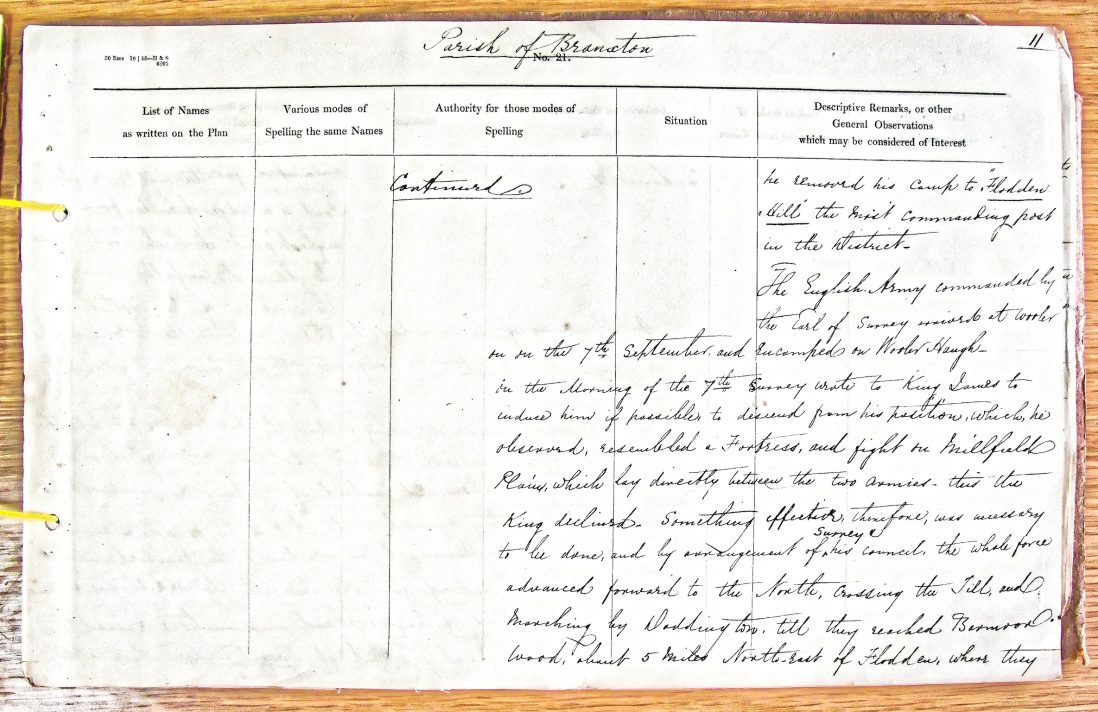 Parish of Branxton
11
No. 21.
List of Names
as written on the Plan
Various modes of
Spelling the same Names
Authority for those modes of
Spelling
Situation
Descriptive Remarks, or other
General Observations
which may be considered of Interest
Continued
he removed his Camp to "Flodden
Hill" the most commanding post
in the District-
The English Army commanded by
the Earl of Surrey arrived at Wooler
on on the 7th September. and Encamped on Wooler Haugh-
in the Morning of the 7th Surrey wrote to King James to
induce him if possible, to descend from his position, which, he
observed, resembled a Fortress, and fight on Millfield
Plain, which lay directly between the two armies- this the
King declined. Something effective, therefore, was necessary
to be done, and by arrangement of Surrey & his council, the whole force
advanced forward to the North, crossing the Till, and
Marching by Doddington, till they reached Barmoor
Wood, about 5 Miles North-East of Flodden, where they